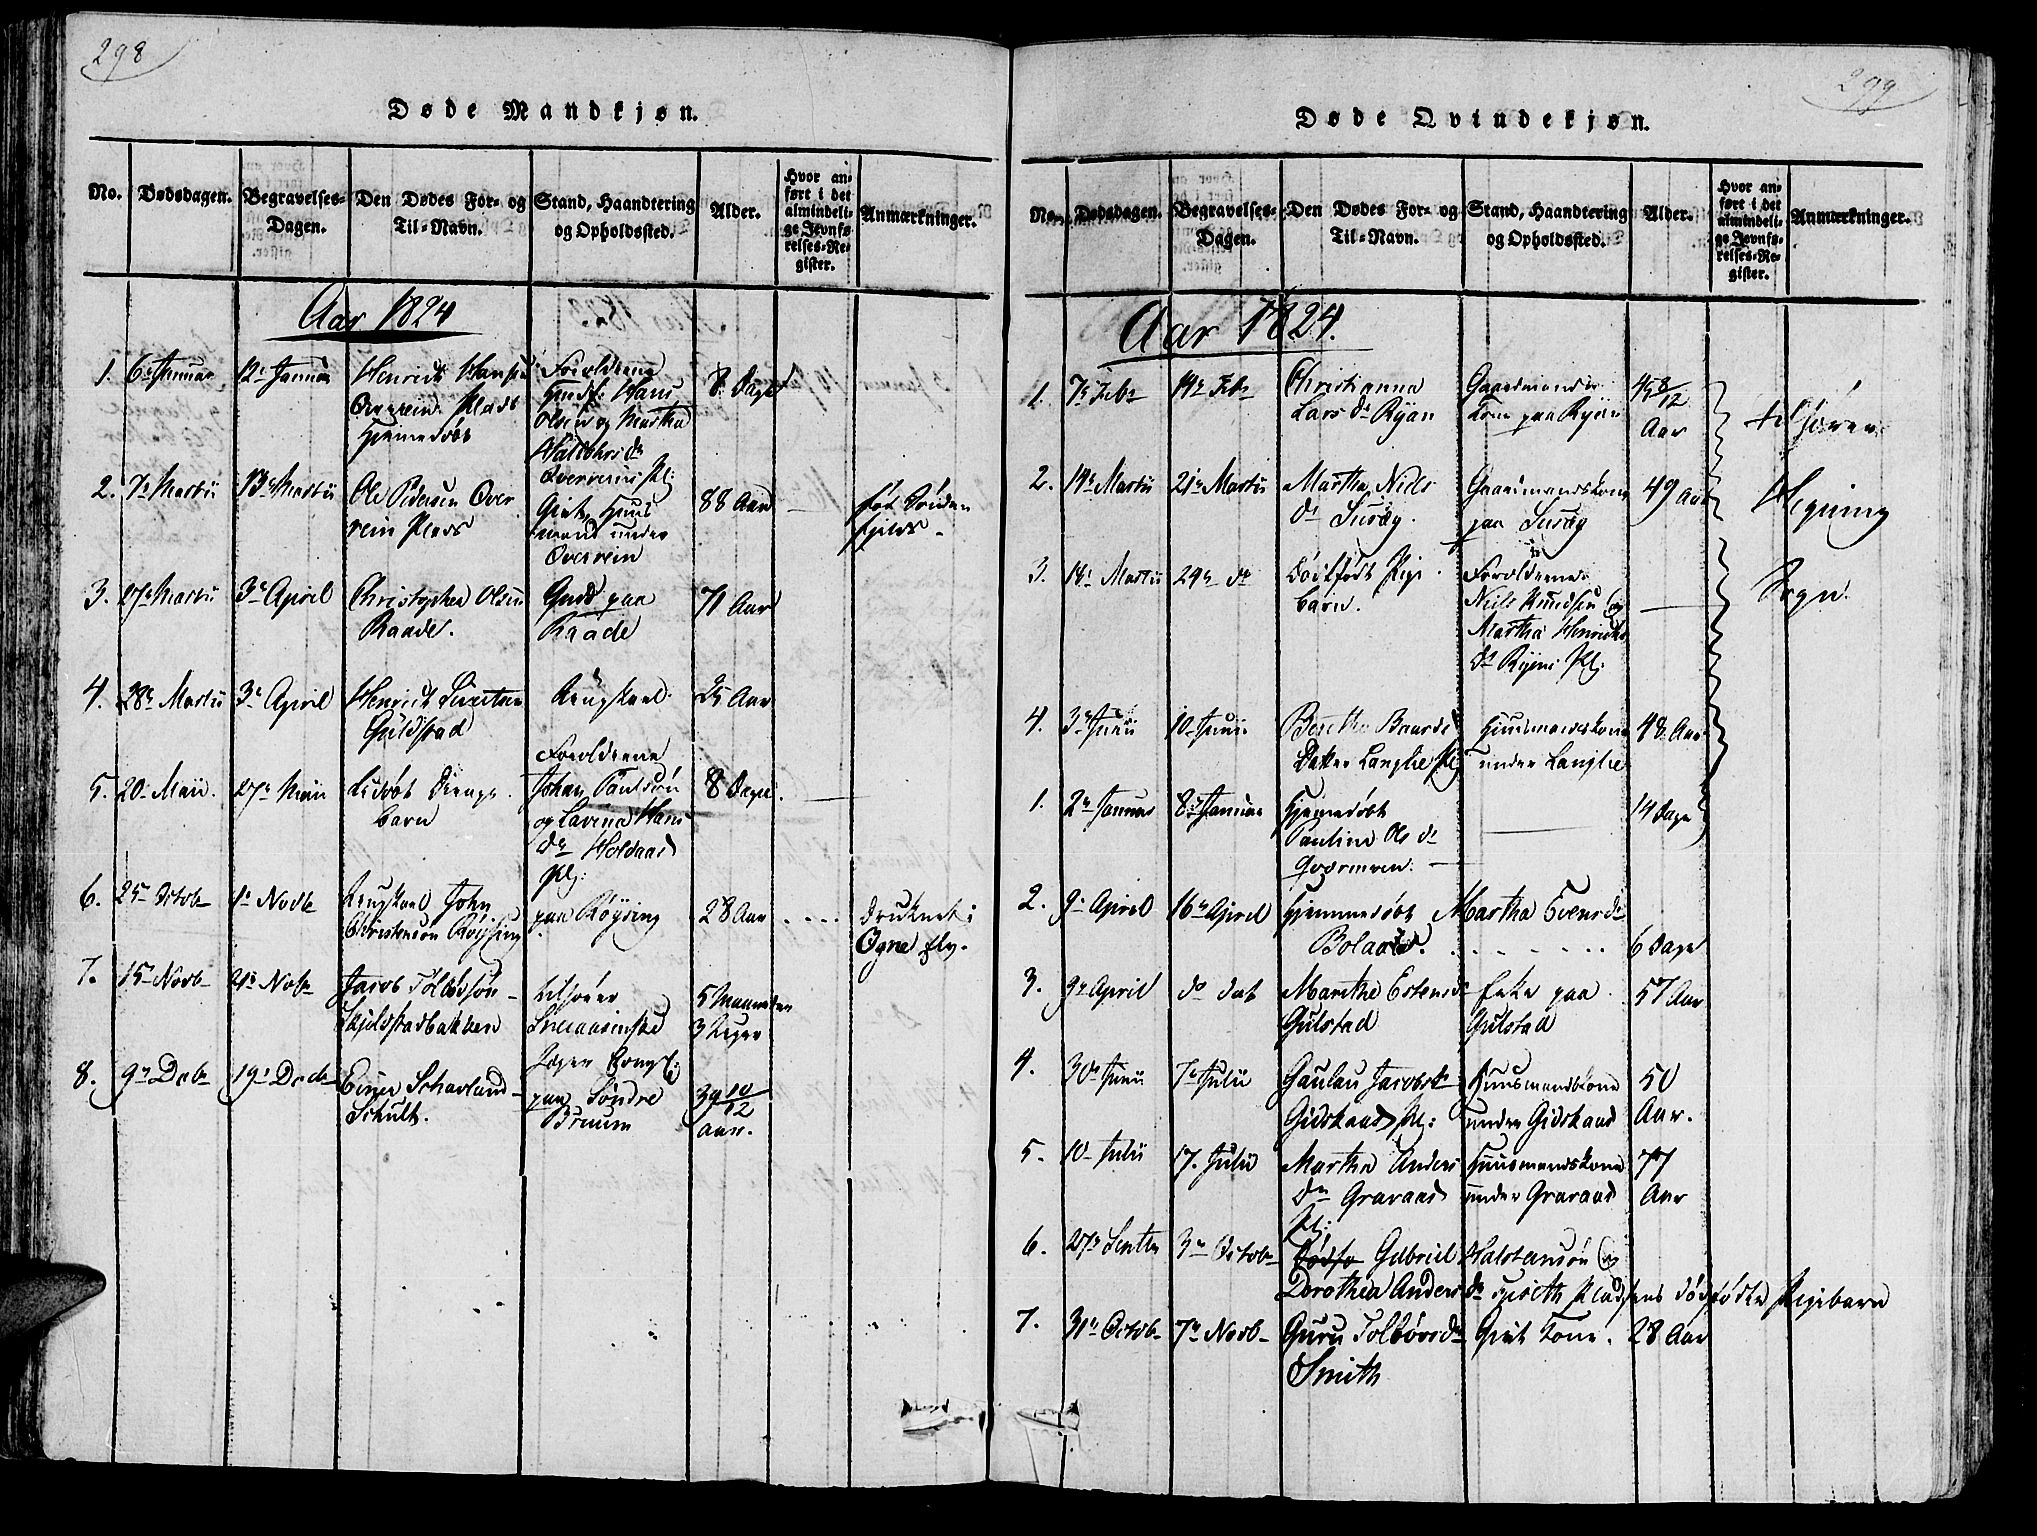 298
Døde Mandkjøn.
No.
Dødsdagen.
Begravelses-
Dagen.
Den Dødes For- og
Til-Navn.
Stand, Haandtering
og Opholdssted.
Alder.
Hvor an-
ført i det
almindeli-
ge Jevnfø-
relses-Re-
gister.
Anmærkninger.
Aar 1824
1. 6 Januar 12 Januar
Henrich Hansen
Overrein Plads
Hjemedøbt
Forældrene
Huusf: Hans
Olsen og Martha
Overreins Pl:
8 Dage
2. 7 Martii 13 Martii
Ole Pedersen Over
rein Plads
Gift, Huus
mand under
Overrein
88 Aar
3. 27 Martii 3 April
Christopher Olsen
Raade.
paa
Raade
71 Aar
4. 28 Martii 3 April
Henrich
Guldstad
Ungkarl
25 Aar
5. 20 Maii. 27 Maii
Drenge
barn
Forældrene
Johan Paulsøn
og Lavina Hans
Dr Holdaas
Pl:
8 Dage
6. 25 Octob 1 Novb
Ungkarl John
Christensøn Røysing
paa Røysing
28 Aar
Druknet i
Ogne Elv.
7. 15 Novb 21 Novb
Jacob
Skjelstadbakken
Sneaasinske
5 Maaneder
3 Uger
8. 9 Decb 19 Decb
Schavland
Schult.
paa Søndre
Bruum
39 10/12
aar.
299
Døde Qvindekjøn.
No.
Dødsdagen.
Begravelses-
Dagen.
Den Dødes For- og
Til-Navn.
Stand, Haandtering
og Opholdssted.
Alder.
Hvor an-
ført i det
almindeli-
ge Jevnfø-
relses-Re-
gister.
Anmærkninger.
Aar 1824.
1. 7 Feb 14 Feb
Christianna
Lars Dr Ryan
Gaardmands
Kone paa Ryan
45 8/12
Aar
tilhører
2. 14 Martii 21 Martii
Martha Niels
Dr
Gaardmandskone
paa
49 Aar
Hegning
3. 14 Martii 29
Dødfødt Pige
barn.
Forældrene
Niels Knudsen og
Martha Henrichs
Dr Ryens Pl:
Sogn.
4. 3 Junii 10 Junii
Berethe Baards
Datter Langlie Pl
Huusmandskone
under Langlie
48 Aar
1. 2 Januar 8 Januar
Hjemedøbt
Pauline Ols Dr
14 Dage
2. 9 April 16 April
Hjemmedøbt Martha Svens Dr
Bolaas.
6 Dage
3. 9 April do dat
Marethe Estens Dr
Gulstad
Enke paa
Gulstad
57 Aar
4. 30 Junii 7 Julii
Gaulau Jacobs Dr
Gidskaas Pl:
Huusmandskone
under Gidskaas
50
Aar.
5. 10 Julii 17. Julii
Martha Anders
Dr Gravaas
Pl:
Huusmandskone
under Gravaas
77
Aar
6. 27 Septb 3 Octob
Gabriel Halstensøn og
Dorothea Anders Dr Pladsens dødfødte Pigebarn
7. 31 Octob 7 Novb
Guru
Smith
Gift Kone.
28 Aar